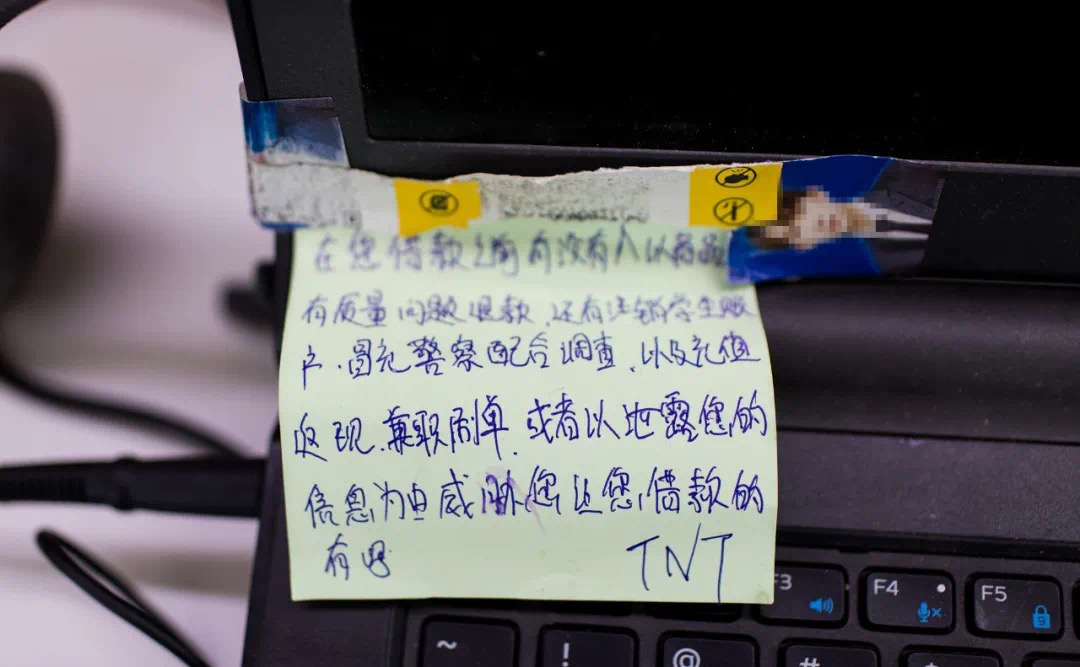 在您借款之前有没有人以商品
有质量问题退款、还有注销学生账
户、冒充警察配合调查、以及充值
返现、兼职刷单、或者以泄露您的
信息为由威胁您让您借款的
有吗
TNT
F3
F4
F5
9
~
!
@
#